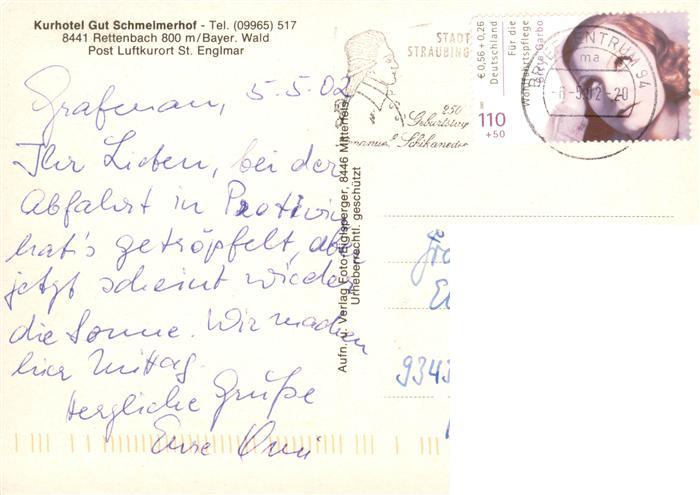 Kurhotel Gut Schmelmerhof - Tel. (09965) 517
8441 Rettenbach 800 m/Bayer. Wald
Post Luftkurort St. Englmar
Grafenau, 5.5.02
Ihr Lieben, bei der
Abfahrt in
hat's getröpfelt, aber
jetzt scheint wieder
die Sonne. Wir machen
hier Mittag.
Herzliche Grüße
Eure Omi
Aufn. u. Verlag Foto-Biglsperger, 8446 Mitterfels
Urheberrechtl. geschützt
STADT
STRAUBING
250
Geburtstag
Schikaneder
€ 0,56 + 0,26
Deutschland
Für die
Wohlfahrtspflege
Greta Garbo
110
+50
BRIEFZENTRUM 94
ma
-6-5.02-20
9343